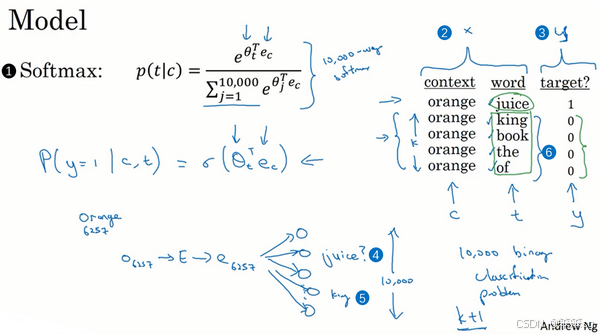 Model
❶ Softmax:
p(t|c) = e^{θ_t^T e_c} / ∑_{j=1}^{10,000} e^{θ_j^T e_c}
10,000-way softmax
❷ x
❸ y
context word target?
orange juice 1
orange king 0
orange book 0
orange the 0
orange of 0
k
❻
c t y
P(y=1 | c,t) = σ(θ_t^T e_c) ←
Orange
6257
O_6257 → E → e_6257
juice? ❹
king ❺
10,000
10,000 binary
classification
problem
k+1
Andrew Ng